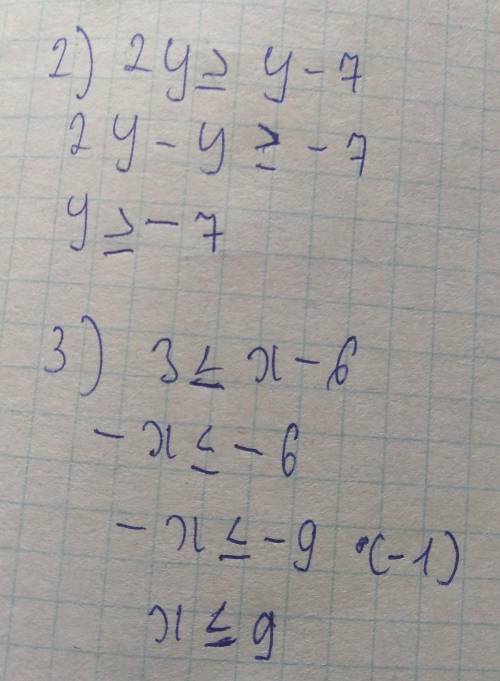 2) 2y ≥ y - 7
2y - y ≥ - 7
y ≥ - 7
3) 3 ≤ x - 6
- x ≤ - 6
- x ≤ - 9 ·(-1)
x ≤ 9